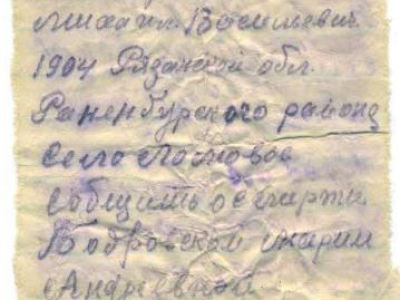 Михаил Васильевич.
1904 Рязанской обл.
Раненбурского района
село
сообщить о смерти
Бобровской Марии
Андреевной